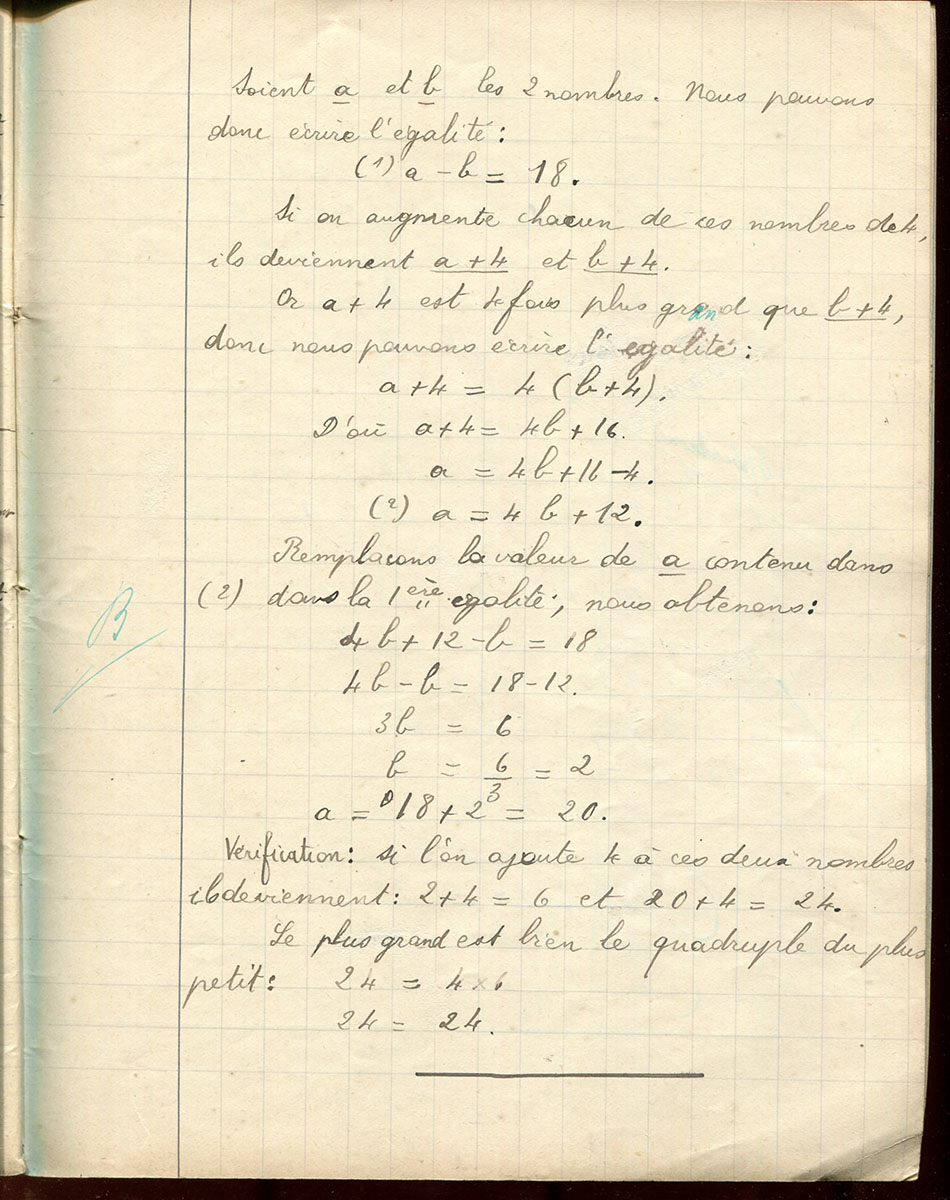 Soient a et b les 2 nombres. Nous pouvons
donc écrire l'égalité :
(1) a - b = 18.
Si on augmente chacun de ces nombres de 4,
ils deviennent a + 4 et b + 4.
Or a + 4 est 4 fois plus grand que b + 4,
donc nous pouvons écrire l'égalité :
a + 4 = 4 (b + 4).
D'où a + 4 = 4b + 16.
a = 4b + 16 - 4.
(2) a = 4b + 12.
Remplacons la valeur de a contenu dans
(2) dans la 1ère égalité, nous obtenons :
4b + 12 - b = 18
4b - b = 18 - 12.
3b = 6
b = 6/3 = 2
a = 18 + 2 = 20.
Vérification : si l'on ajoute 4 à ces deux nombres
ils deviennent : 2 + 4 = 6 et 20 + 4 = 24.
Le plus grand est bien le quadruple du plus
petit : 24 = 4 x 6
24 = 24.
B